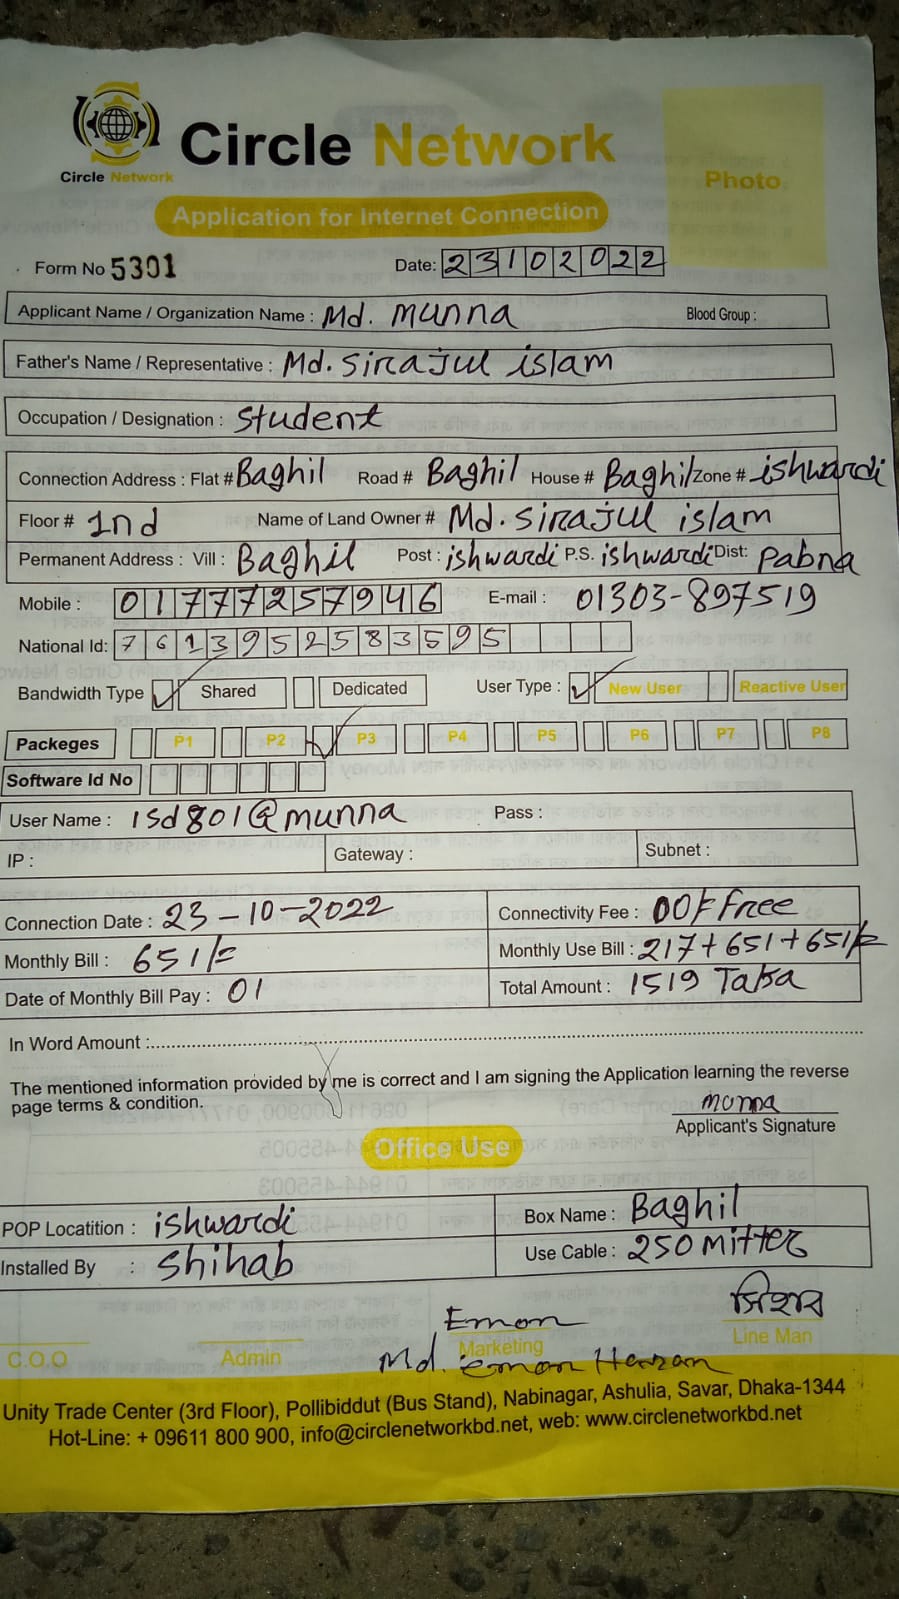 Circle Network
Circle Network
Photo
Application for Internet Connection
Form No 5301 Date: 23102022
Applicant Name / Organization Name : Md. Munna Blood Group :
Father's Name / Representative : Md. Sirajul islam
Occupation / Designation : Student
Connection Address : Flat # Baghil Road # Baghil House # Baghil Zone # ishwardi
Floor # 1nd Name of Land Owner # Md. Sirajul islam
Permanent Address : Vill : Baghil Post : ishwardi P.S. ishwardi Dist: Pabna
Mobile : 01777257946 E-mail : 01303-897519
National Id: 7613952583595
Bandwidth Type Shared Dedicated User Type : New User Reactive User
Packeges P1 P2 P3 P4 P5 P6 P7 P8
Software Id No
User Name : isd801@munna Pass :
IP : Gateway : Subnet :
Connection Date : 23-10-2022 Connectivity Fee : 00/= Free
Monthly Bill : 651/= Monthly Use Bill : 217+651+651/=
Date of Monthly Bill Pay : 01 Total Amount : 1519 Taka
In Word Amount :
The mentioned information provided by me is correct and I am signing the Application learning the reverse
page terms & condition.
munna
Applicant's Signature
Office Use
POP Locatition : ishwardi Box Name : Baghil
Installed By : Shihab Use Cable : 250 Mitter
Emon সিহাব
C.O.O Admin Marketing Line Man
Md. emon Hassan
Unity Trade Center (3rd Floor), Pollibiddut (Bus Stand), Nabinagar, Ashulia, Savar, Dhaka-1344
Hot-Line: + 09611 800 900, info@circlenetworkbd.net, web: www.circlenetworkbd.net